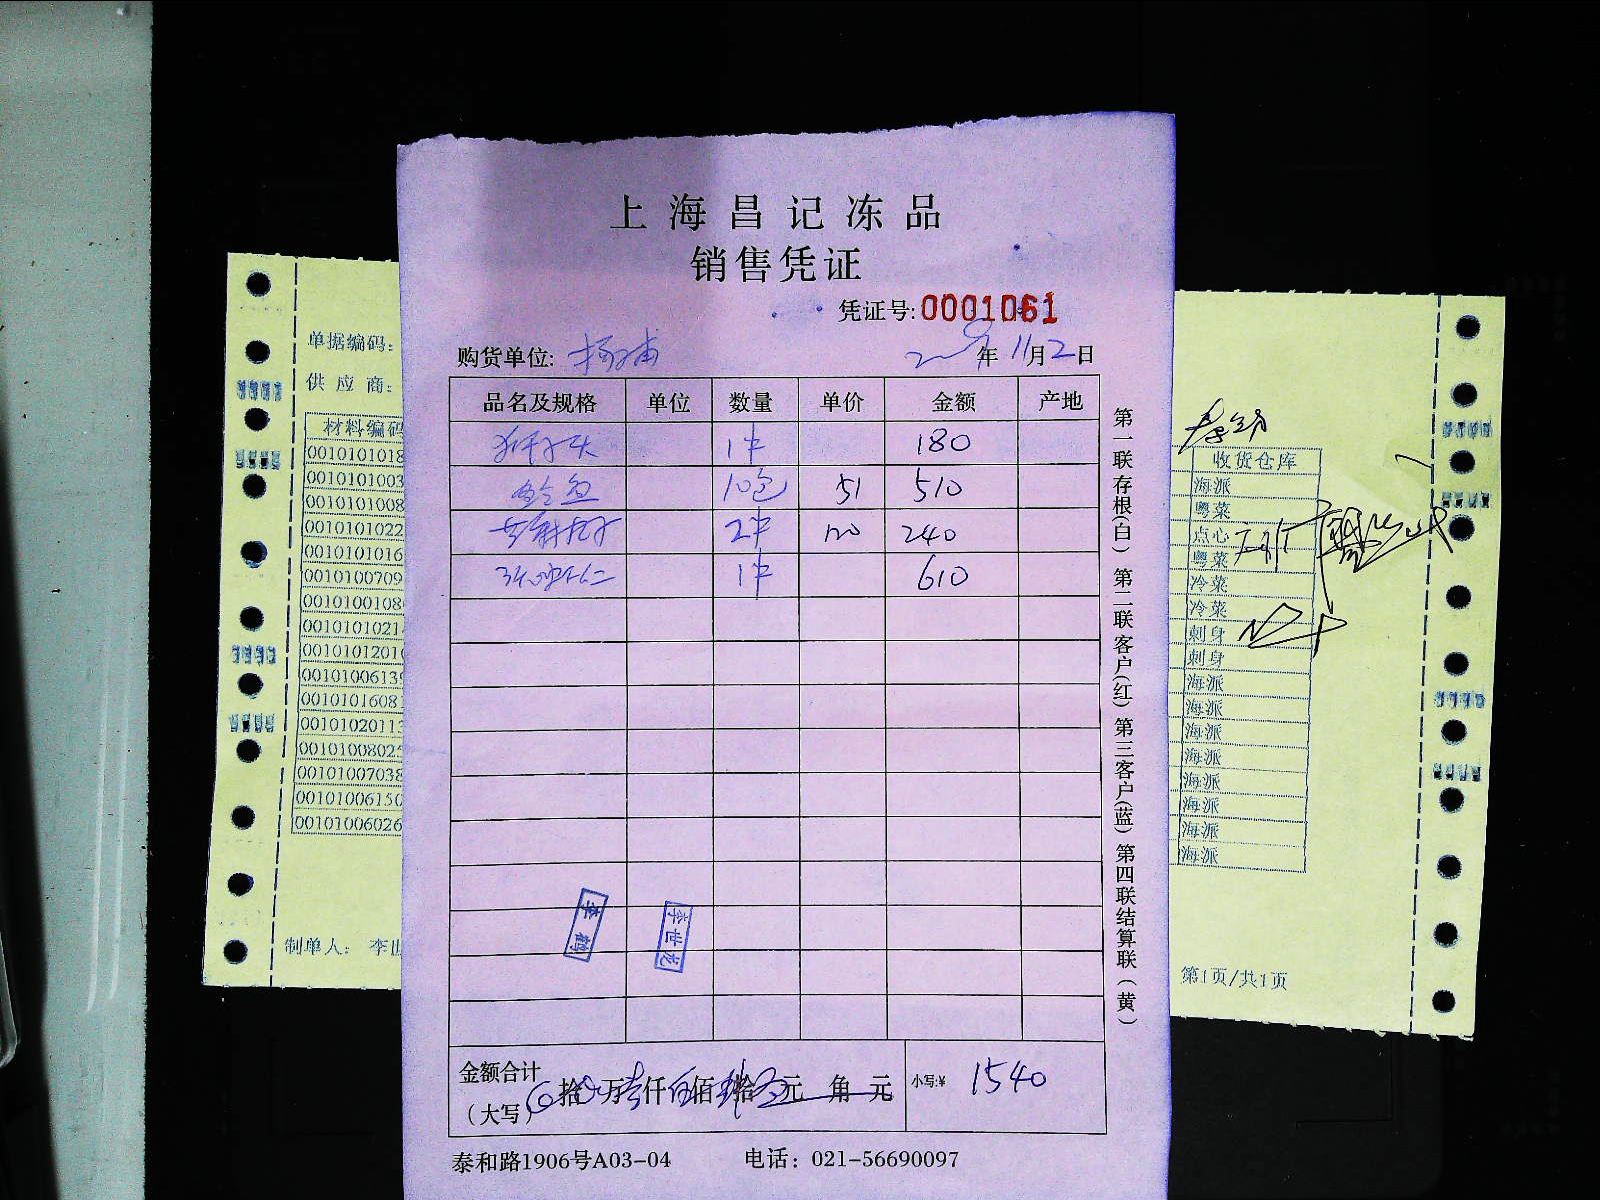 上海昌记冻品
销售凭证
凭证号:0001061
购货单位: 杨浦 年 11月2日
品名及规格 单位 数量 单价 金额 产地
1中 180
鲳鱼 10包 51 510
2中 120 240
1中 610
金额合计(大写) 拾 万 壹仟 伍佰 肆拾 元 角 元 小写:¥ 1540
泰和路1906号A03-04 电话: 021-56690097
第一联存根(白) 第二联客户(红) 第三客户(蓝) 第四联结算联(黄)
李鹤
李世龙
单据编码:
供 应 商:
材料编码
0010101018
0010101003
0010101008
0010101022
0010101016
0010100709
0010100108
0010101021
0010101201
001010061
001010160
001010201
0010100802
0010100703
0010100615
0010100602
制单人: 李
收货仓库
海派
粤菜
点心
粤菜
冷菜
冷菜
刺身
刺身
海派
海派
海派
海派
海派
海派
海派
海派
第1页/共1页